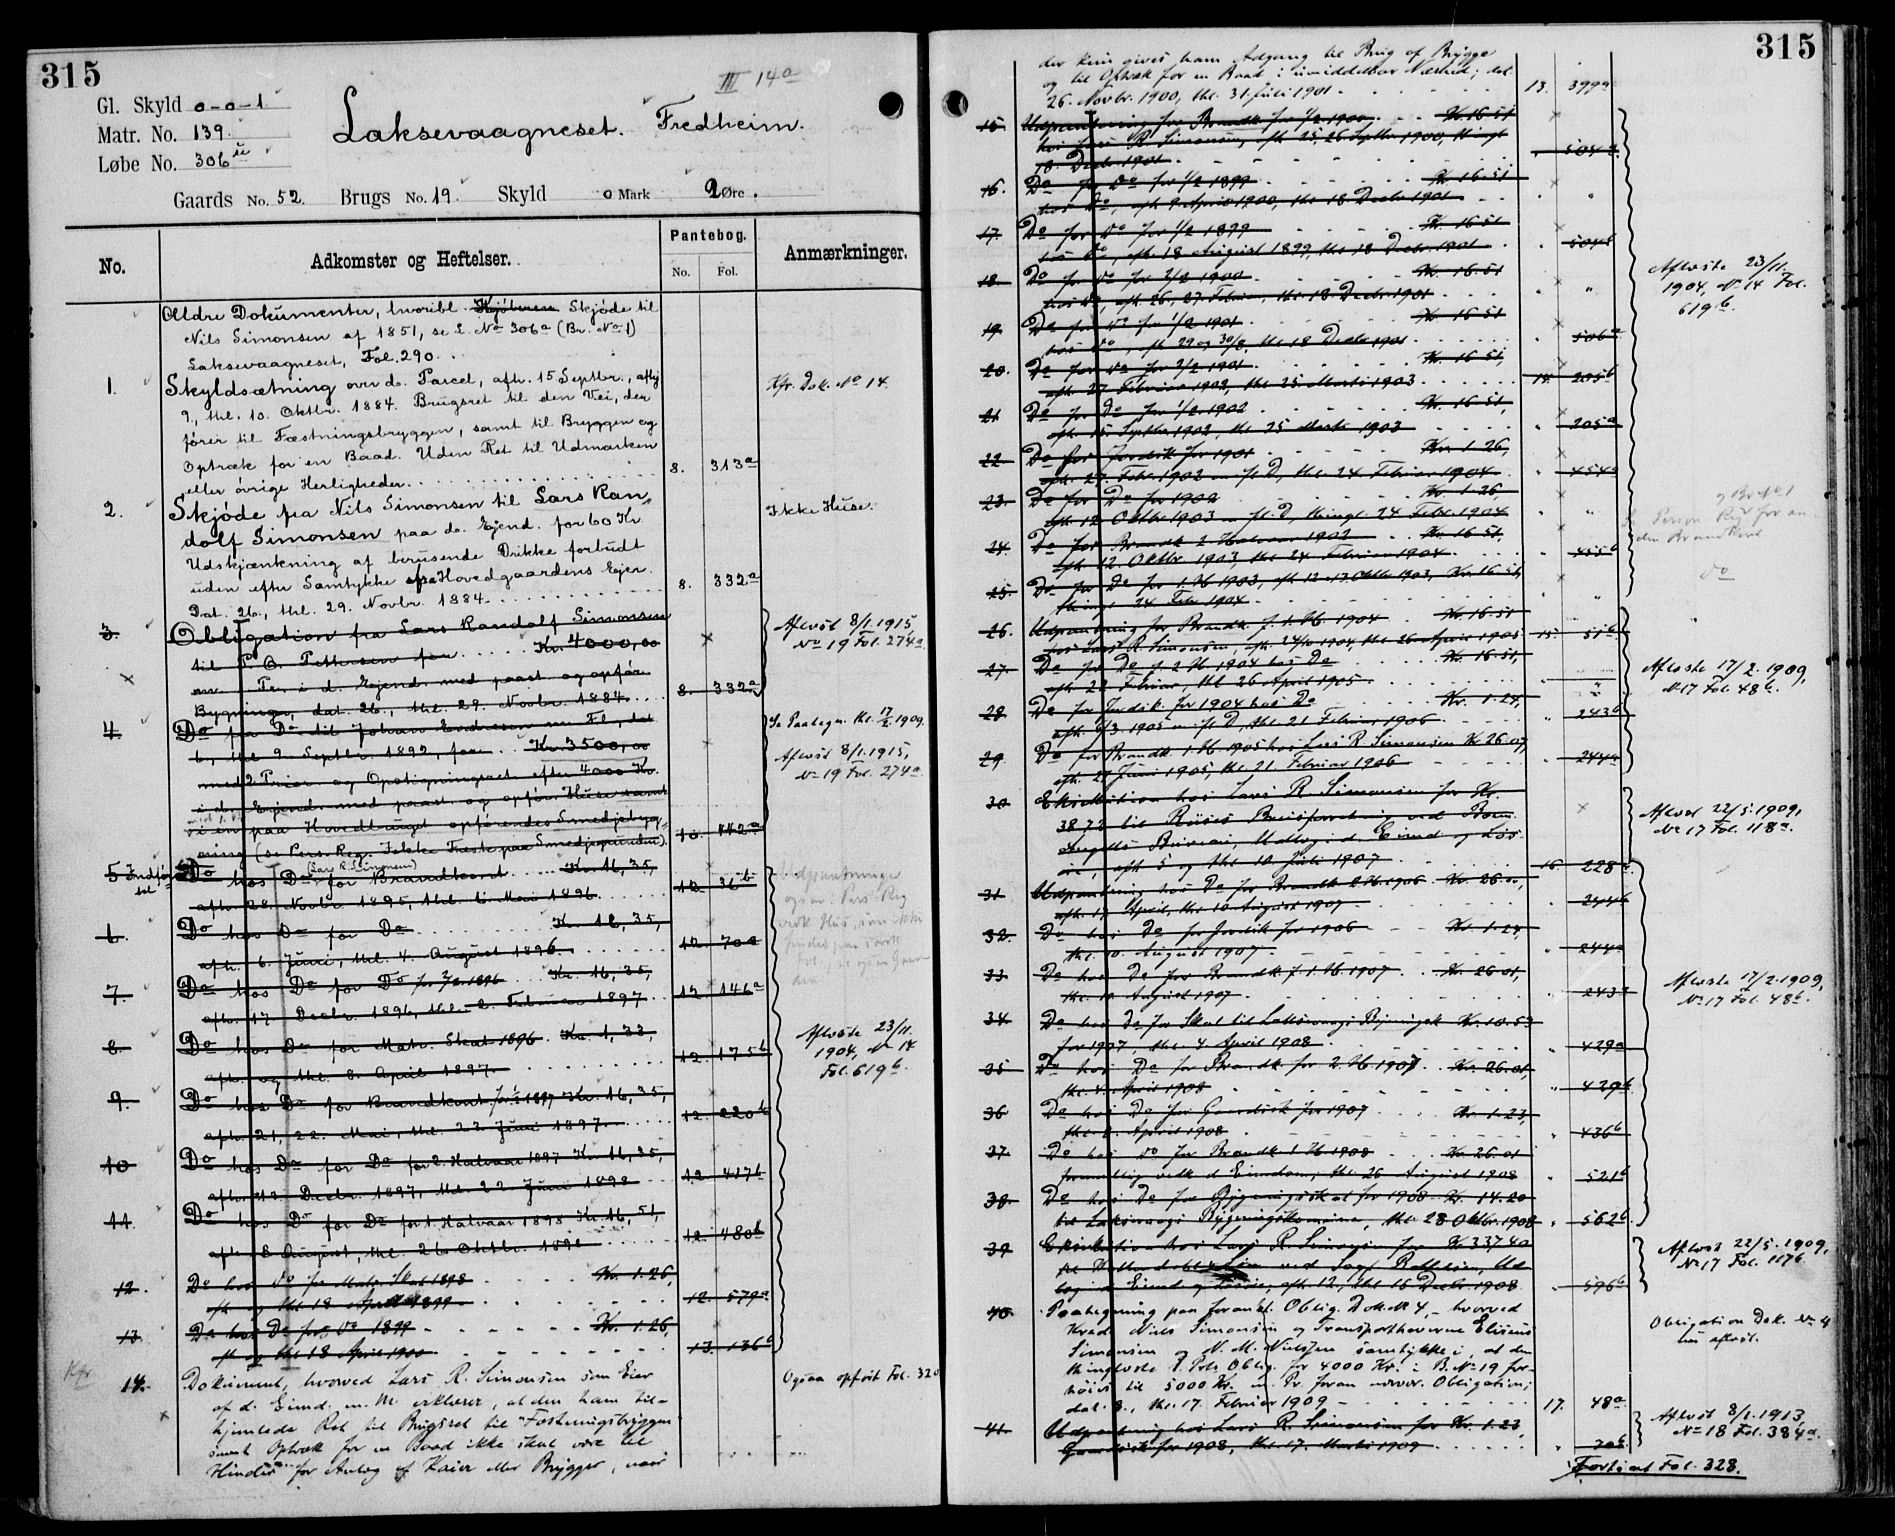 315
III 14a
Gl. Skyld 0-0-1
Matr. No. 139.
Løbe No. 306 u
Laksevaagneset. Fredheim.
Gaards No. 52. Brugs No. 19. Skyld 0 Mark 2 Øre.
No. Adkomster og Heftelser. Pantebog. Anmærkninger.
No. Fol.
Ældre Dokumenter, hvoribl. Skjøde til
Nils Simonsen af 1851, se L. No 306a (Br. No 1)
Laksevaagneset, Fol. 290.
1. Skyldsætning over do. Parcel, afh. 15 Septbr., afhj Kfr. Dok. No 14.
9., thl. 10. Oktbr. 1884. Brugsret til den Vei, der
fører til Fæstningsbryggen, samt til Bryggen og
Optræk for en Baad. Uden Ret til Udmarken
eller øvrige Herligheder. 8. 313a
2. Skjøde fra Nils Simonsen til Lars Ran- Ikke Huse.
dolf Simonsen paa do. Ejend. for 60 Kr.
Udskjænkning af berusende Drikke forbudt
uden efter Samtykke af Hovedgaardens Ejer.
Dat. 26., thl. 29. Novbr. 1884. 8. 332a
3. Obligation fra Lars Randolf Simonsen Aflyst 8/1.1915,
til P. O. Pettersen for Kr. 4000,00 No 19 Fol. 274a
m. 1 Pr. i d. Ejend. med paast. og opfør.
Bygninger, dat. 26., thl. 29. Novbr. 1884. 8. 332a
4. Do fra Do til Johan Endresen m. Fl., dat. Se Paategn. thl. 17/2.1909.
6., thl. 9. Septbr. 1892, for Kr. 3500,00 Aflyst 8/1.1915,
med 2 Prior. og Opstigningsret efter 4000 Kr. No 19 Fol. 274a
i d. Ejend. med paast. og opfør. Huse samt
i en paa Hovedbruget opførendes Smedjebyg-
ning (se Pers. Reg. Feste paa Smedjegrunden). 10. 442a
5 Do hos Do (Lars R. Simonsen) for Brandkont. Kr. 16,35,
afh. 28. Novbr. 1895, thl. 6. Mai 1896. 12. 36b
6. Do hos Do for Do Kr. 16,35,
afh. 6. Juni, thl. 4. August 1896. 12. 70a
7. Do hos Do for Do Kr. 16,35,
afh. 17. Decbr. 1896, thl. 2. Februar 1897. 12. 146a
8. Do hos Do for Matr. Skat 1896. Kr. 1,33, Aflyste 23/11.
afh. og thl. 8. April 1897. 12. 175b 1904, No 14
9. Do hos Do for Brandkont. for 1/2 1897 Kr. 16,35, Fol. 619b.
afh. 21, 22. Mai, thl. 23. Juni 1897. 12. 220b
10 Do hos Do for Do for 2. Halvaar 1897 Kr. 16,35,
afh. 13. Decbr. 1897, thl. 22 Juni 1898 12. 417b
11. Do hos Do for Do for 1. Halvaar 1898 Kr. 16,51,
afh. 8 August, thl. 26 Oktbr. 1898 12. 480b
12. Do hos Do for Matr. Skat 1898 Kr. 1.26
afh og thl 18 April 1899 12. 579a
13. Do hos Do for Do 1899 Kr. 1.26,
afh og thl 18 April 1900 13. 136b
Kfr 14. Dokument, hvorved Lars R. Simonsen som Eier Ogsaa opført Fol. 320
af d. Eiend. m. M. erklærer, at den ham til-
hjemlede Ret til Brugsret til Fæstningsbryggen
samt Optræk for en Baad ikke skal være til
Hinder for Anlæg af Kaier eller Brygger, naar
315
der kun gives ham Adgang til Brug af Brygge
og til Optræk for en Baad i umiddelbar Nærhed; dat.
26. Novbr. 1900, thl. 31. Juli 1901. 13. 399a
15. Udpantning for Brandk. for 1/2 1900. Kr. 16.51
hos Lars R. Simonsen, afh. 25, 26 Septbr. 1900, thingl.
18. Decbr. 1901. 504a
16. Do for Do for 1/2 1899 Kr. 16.51
hos Do, afh. 9 April 1900, thl. 18 Decbr. 1901 "
17. Do for Do for 1/2 1899 Kr. 16.51
hos Do, afh. 18 August 1899, thl. 18 Decbr. 1901 " 504b
18. Do for Do for 2/2 1900 Kr. 16.51 Aflyste 23/11.
hos Do, afh. 26, 27. Februar, thl. 18 Decbr. 1901 " 1904, No 14 Fol.
19. Do for Do for 1/2 1901 Kr. 16.51 619b.
hos Do, afh. 29 og 30/8, thl. 18 Decbr. 1901 506a
20. Do for Do for 2/2 1901 Kr. 16.51,
afh. 27 Februar 1902, thl. 25. Marts 1903 14. 205b
21 Do for Do for 1/2 1902 Kr. 16.51,
afh. 15. Septbr. 1902, thl. 25 Marts 1903 " 205a
22. Do for Jordsk. for 1901 Kr. 1.26,
afh. 27. Febr. 1902 thl. 24 Februar 1904. " 454a
23. Do for Do for 1902 Kr. 1.26
afh. 12 Oktbr. 1903 thingl. 24 Febr. 1904 "
24. Do for Brandk. 2 Halvaar 1902 Kr. 16.51,
afh. 12. Oktbr. 1903, thl. 24. Februar 1904 " 455b
25. Do for Do for 1. H 1903, afh. 12 Oktbr. 1903, Kr. 16.51,
thingl. 24. Febr. 1904 " "
26. Udpantning for Brandk. f. 1. H. 1904 Kr. 16.51
hos Lars R. Simonsen, afh. 1904, thl. 26 April 1905 15. 51b
27. Do for Do f. 2 H. 1904 hos Do Kr. 16.51, Aflyste 17/2.1909,
afh. 22 Februar, thl. 26 April 1905 " No 17 Fol. 48b.
28. Do for Jordsk. for 1904 hos Do Kr. 1.24,
thl. 21 Februar 1906 " 243b
29. Do for Brandk. 1. H. 1905 hos Lars R. Simonsen Kr. 26.07,
afh. 27 Juni 1905, thl. 21 Februar 1906 244a
30. Eksekution hos Lars R. Simonsen for Kr.
Aflyst 22/5.1909,
No 17 Fol. 118a.
afh. 5 og thl. 10. Juli 1907. 16. 228
31. Udpantning hos Do for Brandk. 2 H. 1906 Kr. 26.00,
afh. 17 April, thl. 10. August 1907 244b
32. Do hos Do for Jordsk. for 1906 Kr. 1.24,
thl. 10. August 1907 " 244a
33. Do hos Do for Brandk. f. 1. H. 1907. Kr. 26.01, Aflyste 17/2.1909,
thl. 10. August 1907. 243a No 17 Fol. 48b.
34. Do hos Do for Skat til Laksevaags Bygningsk. Kr. 10.53
for 1907, thl. 4 April 1908. " 429a
35 Do hos Do for Brandk. for 2. H. 1907 Kr. 26.01,
thl. 4. April 1908 " 429b
36 Do hos Do for Grundsk. for 1907 Kr. 1.23,
thl. April 1908 " 436b
37. Do hos Do for Brandk. 1 H 1908 Kr. 26.01
thl. 26 August 1908 521b
38. Do hos Do for Bygningsskat for 1908 Kr. 14.20
til Laksevaags Bygningskommune, thl. 28 Oktbr. 1908 562b
39. Eksekution hos Lars R. Simonsen for Kr. 337.40 Aflyst 22/5.1909,
No 17 Fol. 117b.
afh. 12, thl. 16 Decbr. 1908 596b
40. Paategning paa foranst. Oblig. Dok. No 4, hvorved Obligation Dok. No 4
Nils Simonsen og Transporthaverne Elisæus nu aflyst.
Simonsen og N. M. Nielsen samtykke i, at den
thinglyste 1. Prts. Oblig. for 4000 Kr. i B. No 19 for-
høies til 5000 Kr. m. Pr. foran nærvær. Obligation;
dat. 8., thl. 17. Februar 1909 17. 48a
41. Udpantning hos Lars R. Simonsen for Kr. 1.23, Aflyst 8/1.1913,
Grundsk. for 1908, thl. 17. Marts 1909 " 70b No 18 Fol. 384a.
Fortsat Fol. 328.